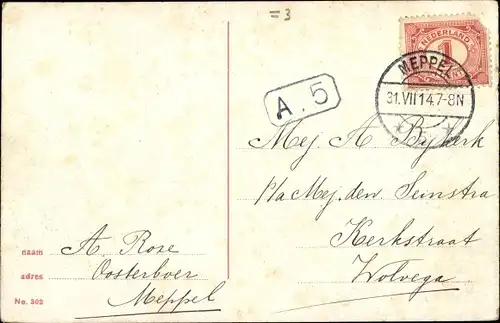 =3
NEDERLAND
1
CENT
MEPPEL
31.VII 14.7-8N
A.5
Mej. A Bijlerk
P/a Mej. den Seinstra
Kerkstraat
Wolvega
naam A Roze
adres Oosterboer
Meppel
No. 302